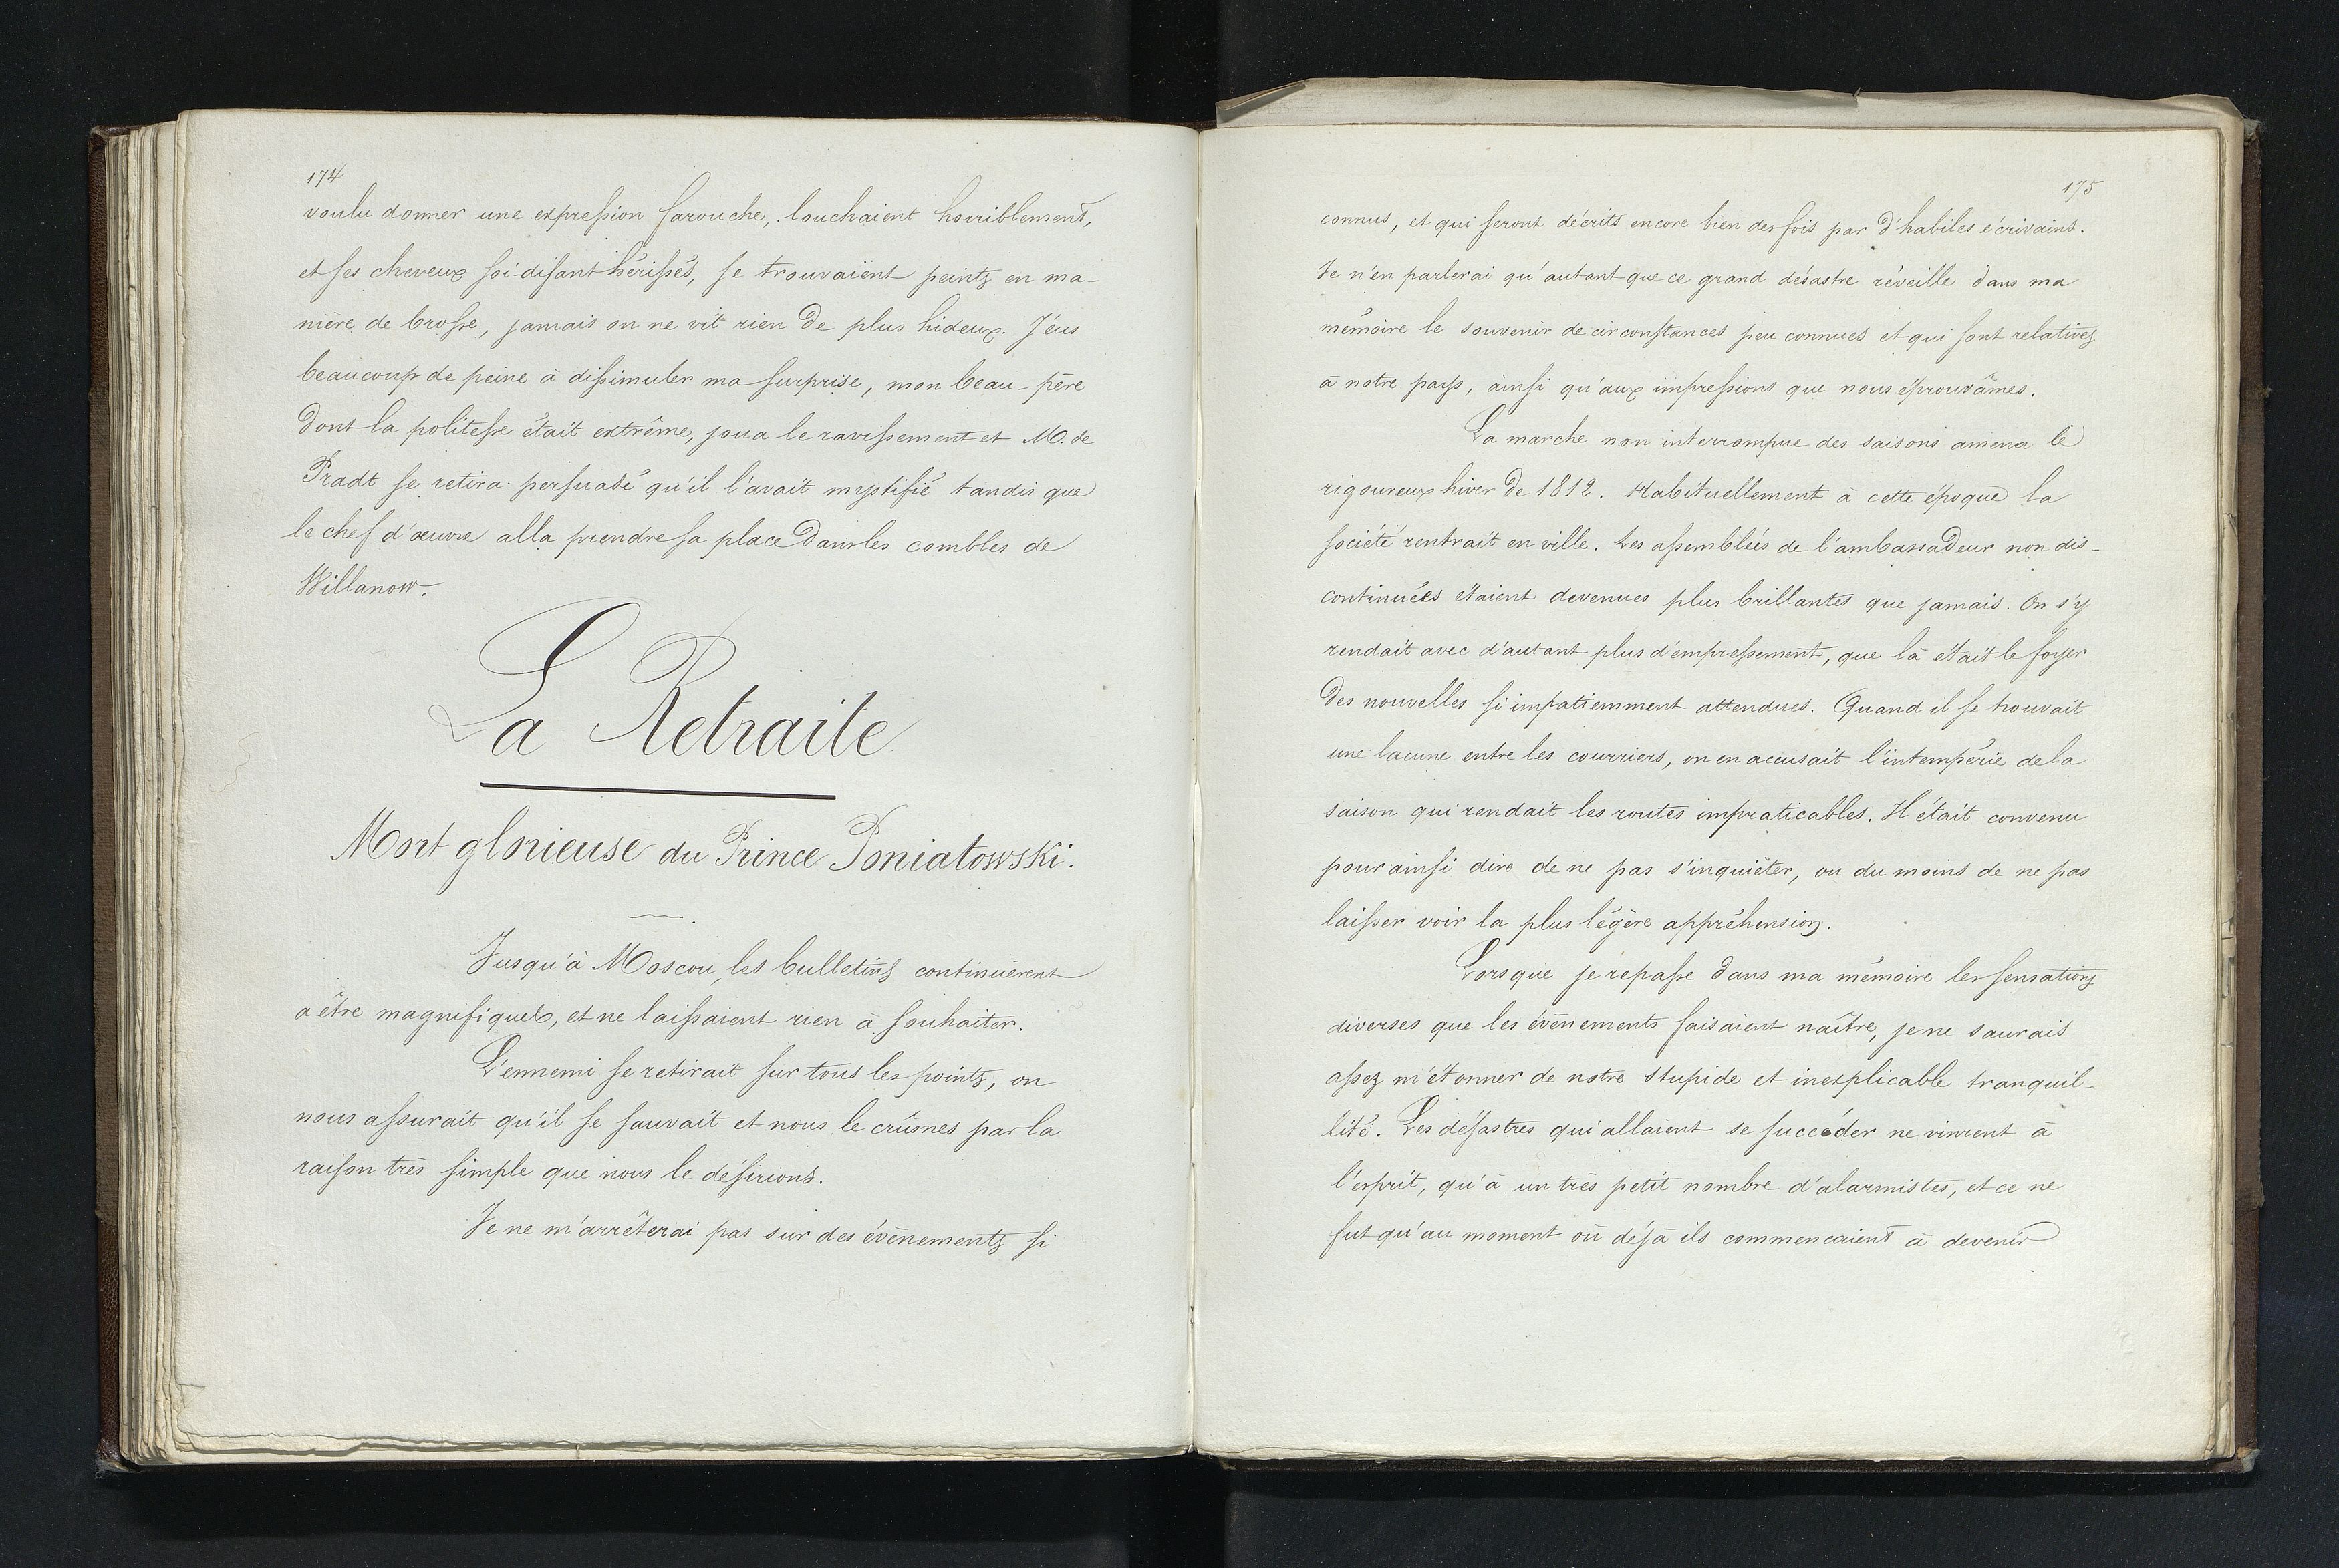 174
voulu donner une expression farouche, louchaient horriblement,
et ses cheveux soi-disant hérissés, se trouvaient peints en ma-
nière de brosse, jamais on ne vit rien de plus hideux. J'eus
beaucoup de peine à dissimuler ma surprise, mon beau-père
dont la politesse était extrême, joua le ravissement et M. de
Pradt se retira persuadé qu'il l'avait mystifié tandis que
le chef d'œuvre alla prendre sa place dans les combles de
Willanow.
La Retraite
Mort glorieuse du Prince Poniatowski.
Jusqu'à Moscou, les bulletins continuèrent
a être magnifiques, et ne laissaient rien à souhaiter.
L'ennemi se retirait sur tous les points, on
nous assurait qu'il se sauvait et nous le crûmes par la
raison très simple que nous le désirions.
Je ne m'arrêterai pas sur des évènements si
175
connus, et qui seront décrits encore bien des fois par d'habiles écrivains.
Je n'en parlerai qu'autant que ce grand désastre réveille dans ma
mémoire le souvenir de circonstances peu connues et qui sont relatives
à notre pays, ainsi qu'aux impressions que nous éprouvâmes.
La marche non interrompue des saisons amena le
rigoureux hiver de 1812. Habituellement à cette époque la
société rentrait en ville. Les assemblées de l'ambassadeur non dis-
continuées étaient devenues plus brillantes que jamais. On s'y
rendait avec d'autant plus d'empressement, que là était le foyer
des nouvelles si impatiemment attendues. Quand il se trouvait
une lacune entre les courriers, on en accusait l'intempérie de la
saison qui rendait les routes impraticables. Il était convenu
pour ainsi dire de ne pas s'inquiéter, ou du moins de ne pas
laisser voir la plus légère appréhension.
Lorsque je repasse dans ma mémoire les sensations
diverses que les évènements faisaient naître, je ne saurais
assez m'étonner de notre stupide et inexplicable tranquil-
lité. Les désastres qui allaient se succéder ne vinrent à
l'esprit, qu'à un très petit nombre d'alarmistes, et ce ne
fut qu'au moment où déjà ils commencaient à devenir